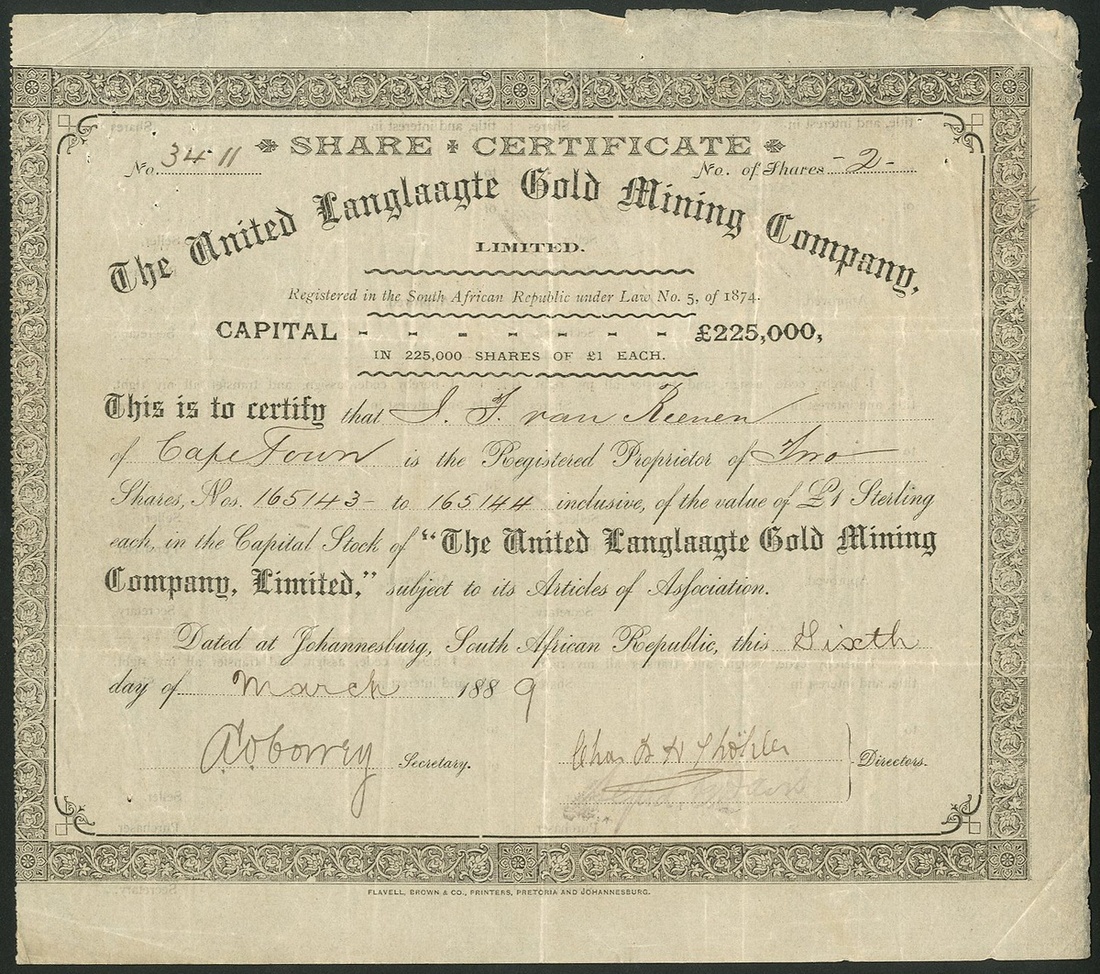 SHARE CERTIFICATE
No. 3411
No. of Shares -2-
The United Langlaagte Gold Mining Company,
LIMITED.
Registered in the South African Republic under Law No. 5, of 1874.
CAPITAL - - - - - - - £225,000,
IN 225,000 SHARES OF £1 EACH.
This is to certify that J. F. van Reenen
of Cape Town is the Registered Proprietor of Two
Shares, Nos. 165143 - to 165144 inclusive, of the value of £1 Sterling
each, in the Capital Stock of "The United Langlaagte Gold Mining
Company, Limited," subject to its Articles of Association.
Dated at Johannesburg, South African Republic, this Sixth
day of March 1889
Secretary.
Chas
Directors.
FLAVELL, BROWN & CO., PRINTERS, PRETORIA AND JOHANNESBURG.